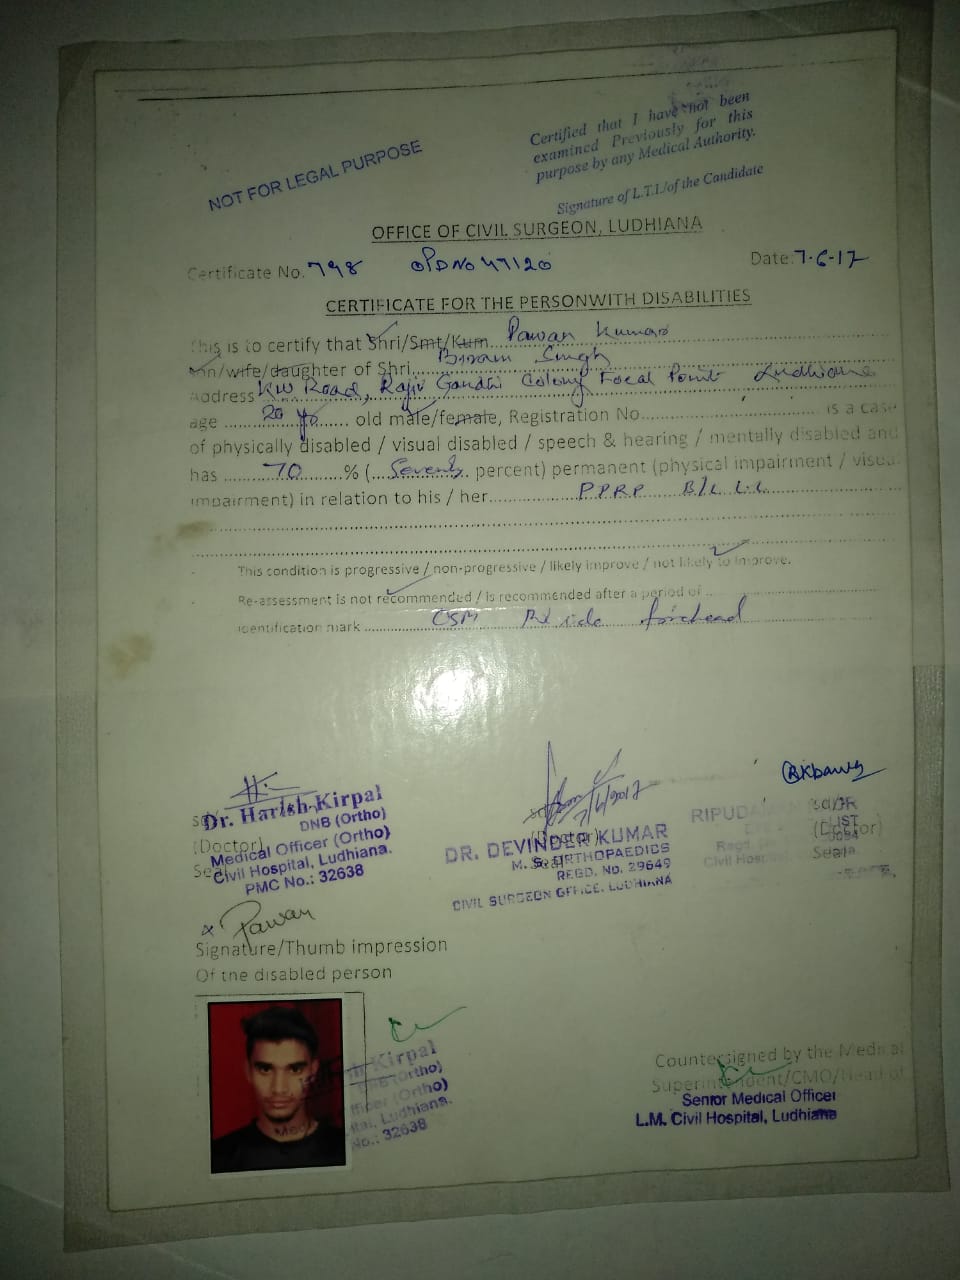 NOT FOR LEGAL PURPOSE
Certified that I have not been
examined Previously for this
purpose by any Medical Authority.
Signature of L.T.I./of the Candidate
OFFICE OF CIVIL SURGEON, LUDHIANA
Certificate No. 798 OPD NO 47120 Date: 7-6-17
CERTIFICATE FOR THE PERSONWITH DISABILITIES
This is to certify that Shri/Smt/Kum Pawan Kumar
son/wife/daughter of Shri Singh
Address Road, Rajiv Gandhi Colony Focal Point Ludhiana
age 20 yr old male/female, Registration No. is a case
of physically disabled / visual disabled / speech & hearing / mentally disabled and
has 70 % (Seventy percent) permanent (physical impairment / visual
impairment) in relation to his / her PPRP B/L L.L
This condition is progressive / non-progressive / likely improve / not likely to improve.
Re-assessment is not recommended / is recommended after a period of
identification mark forehead
Dr. Harish Kirpal
DNB (Ortho)
(Doctor)
Medical Officer (Ortho)
Civil Hospital, Ludhiana.
PMC No.: 32638
7/6/2017
(Doctor)
DR. DEVINDER KUMAR
M. S. ORTHOPAEDICS
REGD. NO. 29649
CIVIL SURGEON OFFICE, LUDHIANA
(Doctor)
Seal
Pawan
Signature/Thumb impression
Of the disabled person
Kirpal
(Ortho)
Officer (Ortho)
Ludhiana.
No.: 32638
Countersigned by the Medical
Superintendent/CMO/Head of
Senior Medical Officer
L.M. Civil Hospital, Ludhiana